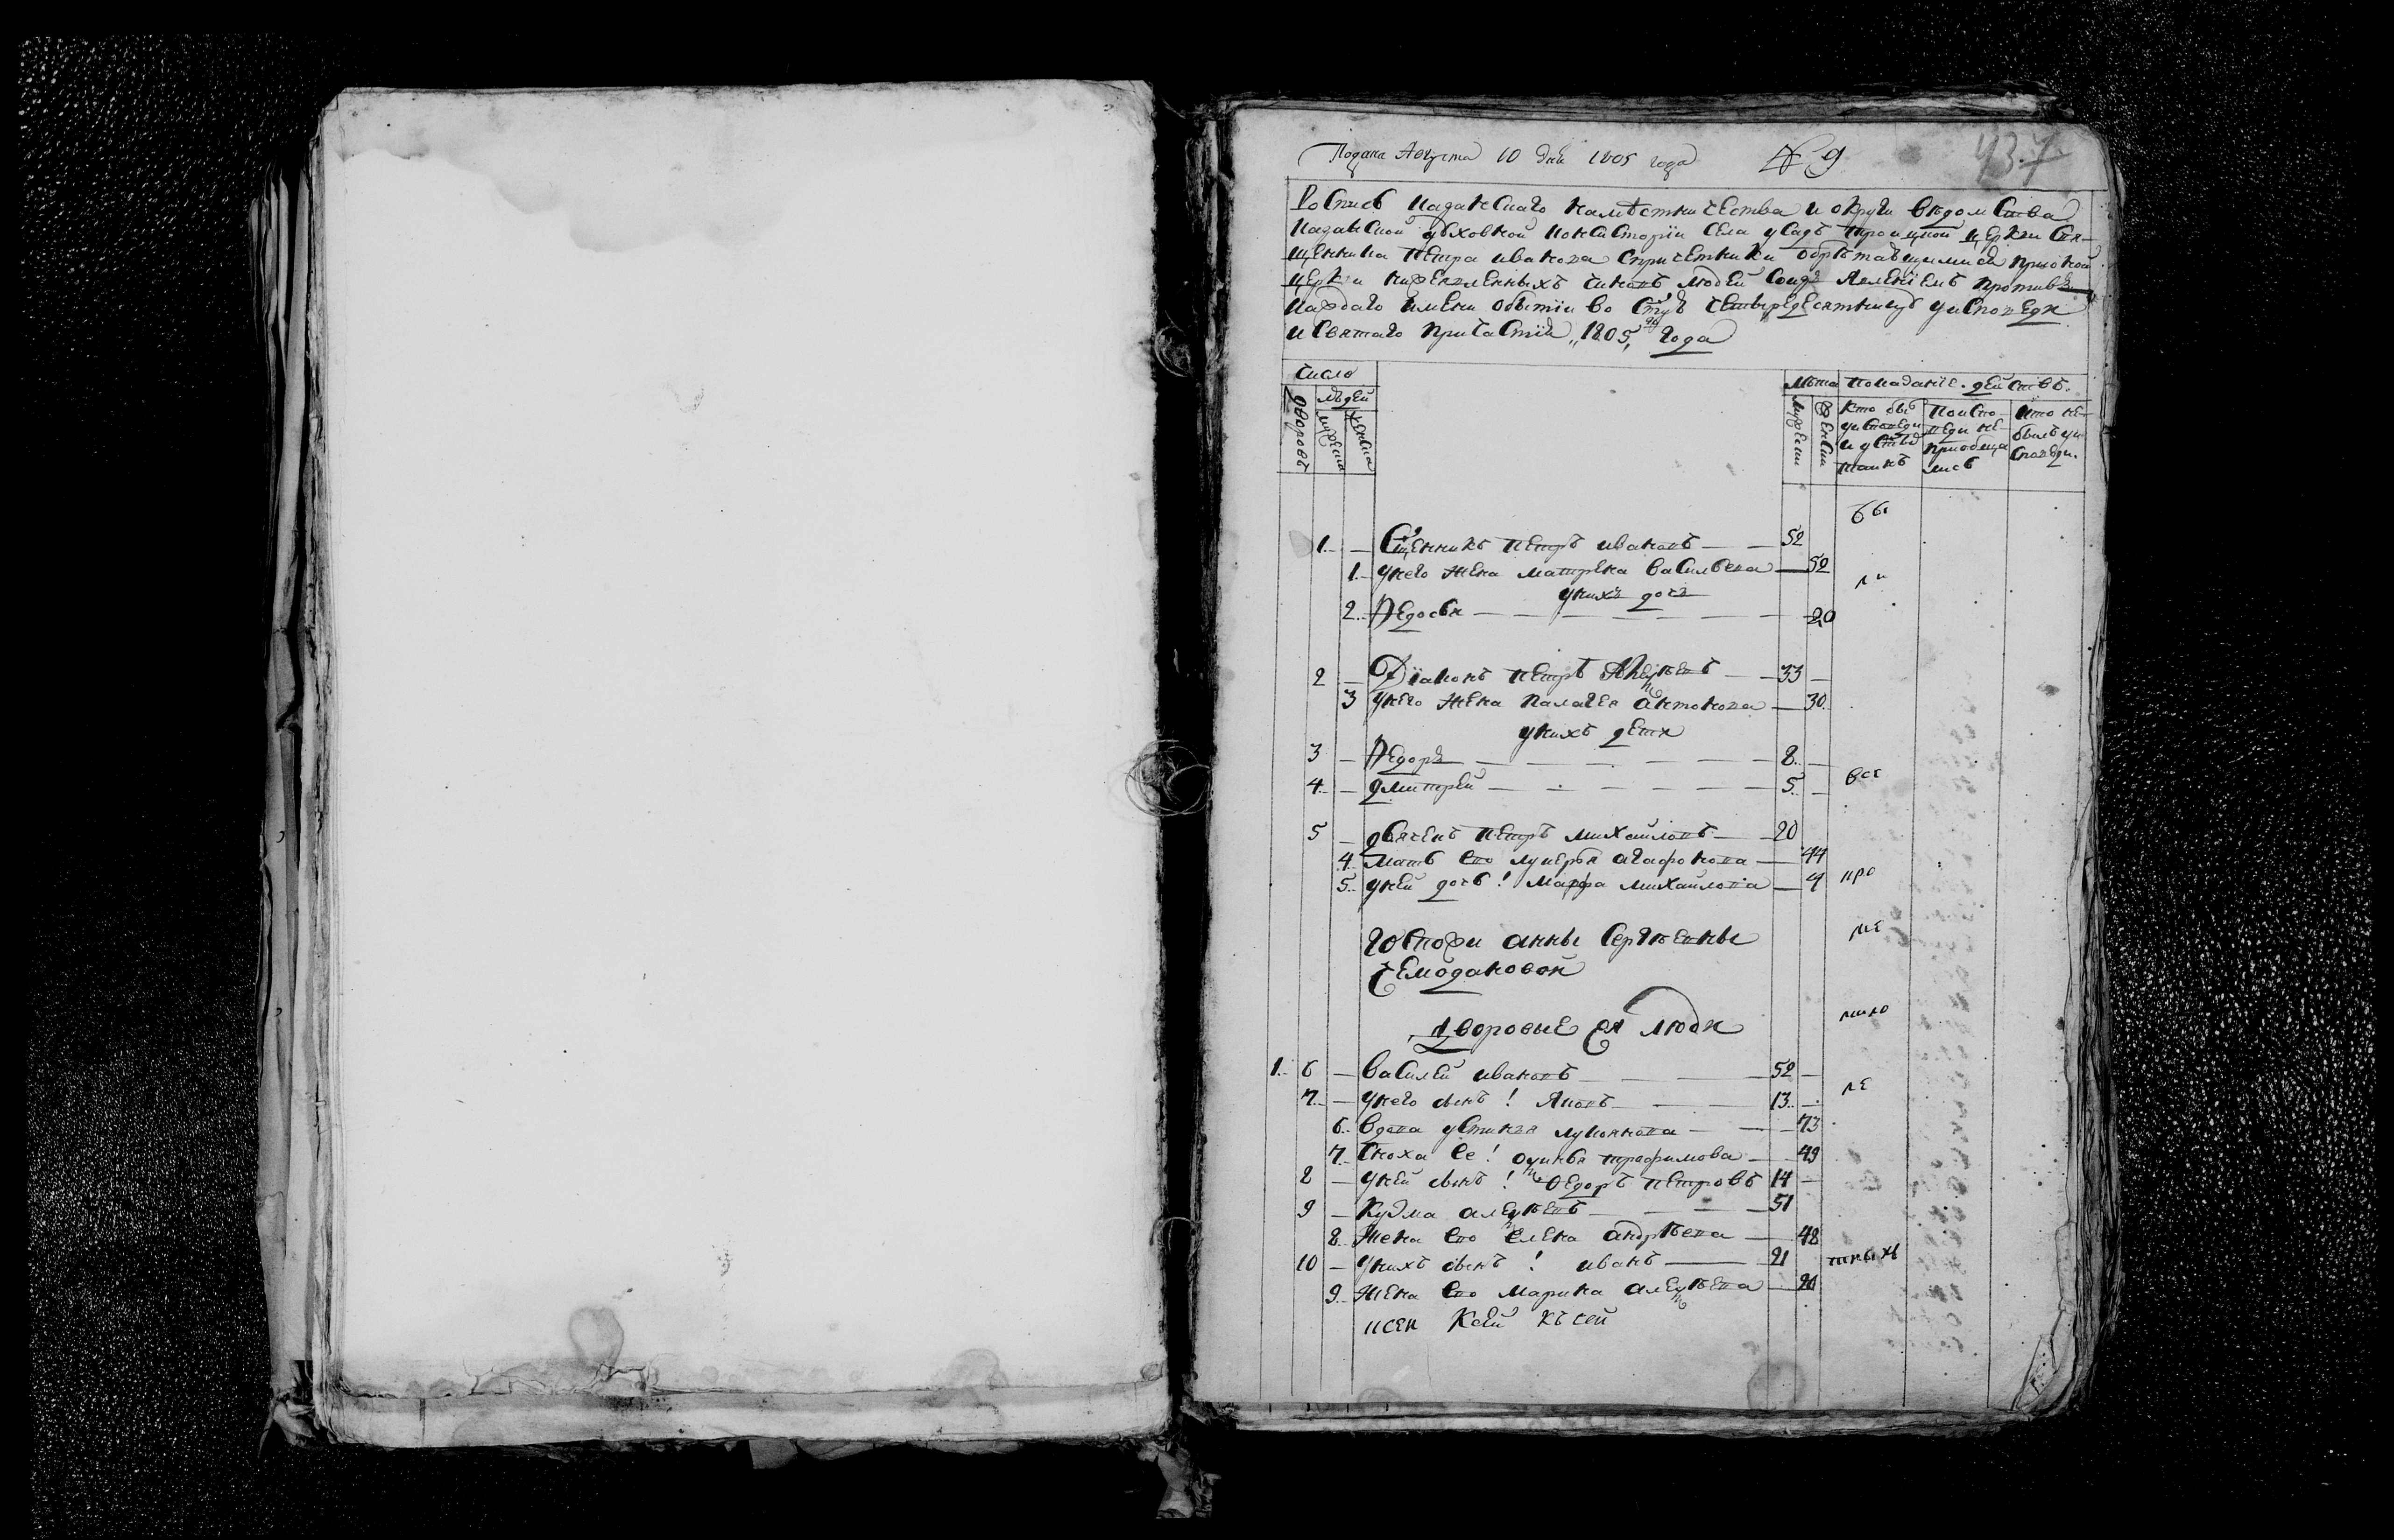 Подана Августа 10 дня 1805 года № 9
437
Роспись Казанскаго намѣстничества и округи вѣдомства
Казанской духовной консисторїи села усадъ троицкой церкви свя-
щенника петра иванова спричетники обрѣтающимися присной
церкви нижеявленныхъ чиновъ людей соизъявленіемъ противъ
каждаго имени о бытіи во стую четыредесятницу уисповеди
и святаго причастїя „1805„ го года
число
дворовъ
людей
мужеска
женска
лѣта
мужески
женски
показанїе действъ.
кто был уисповеди и устых таинъ
поиспо-веди не приобща лись
кто не-былъ уи споведи.
1. — Сщенникъ петръ ивановъ — 52
1. унего жена матрена васильева — 52
унихъ дочь
2. Ѳедосья — 20
2 — Дїаконъ петръ Алексѣевъ — 33 —
3 унего жена палагея антонова — 30.
унихъ дети
3 — Ѳедоръ — 8. —
4. — дмитрей — 5. —
5 — дьячекъ петръ михайловъ — 20
4. мать ево лукерья агафонова — 44
5. уней дочь! марфа михайлова — 4
госпожи анны сергѣевны
чемодановой
дворовые ея люди
1. 6 — василей ивановъ — 52 —
7. — унего сынъ! яковъ — 13. —
6. вдова устинья лукоянова — 73
7. сноха ее! акулина трофимова — 49
8 — уней сынъ! Ѳедоръ петровъ 14 —
9 — кузма алексѣевъ — 51
8. жена ево елена андрѣева — 48
10 — унихъ сынъ! иванъ — 21
9. жена ево марина алексѣева — 20
бы
ли
все
про
ме
мало
ле
тныхъ